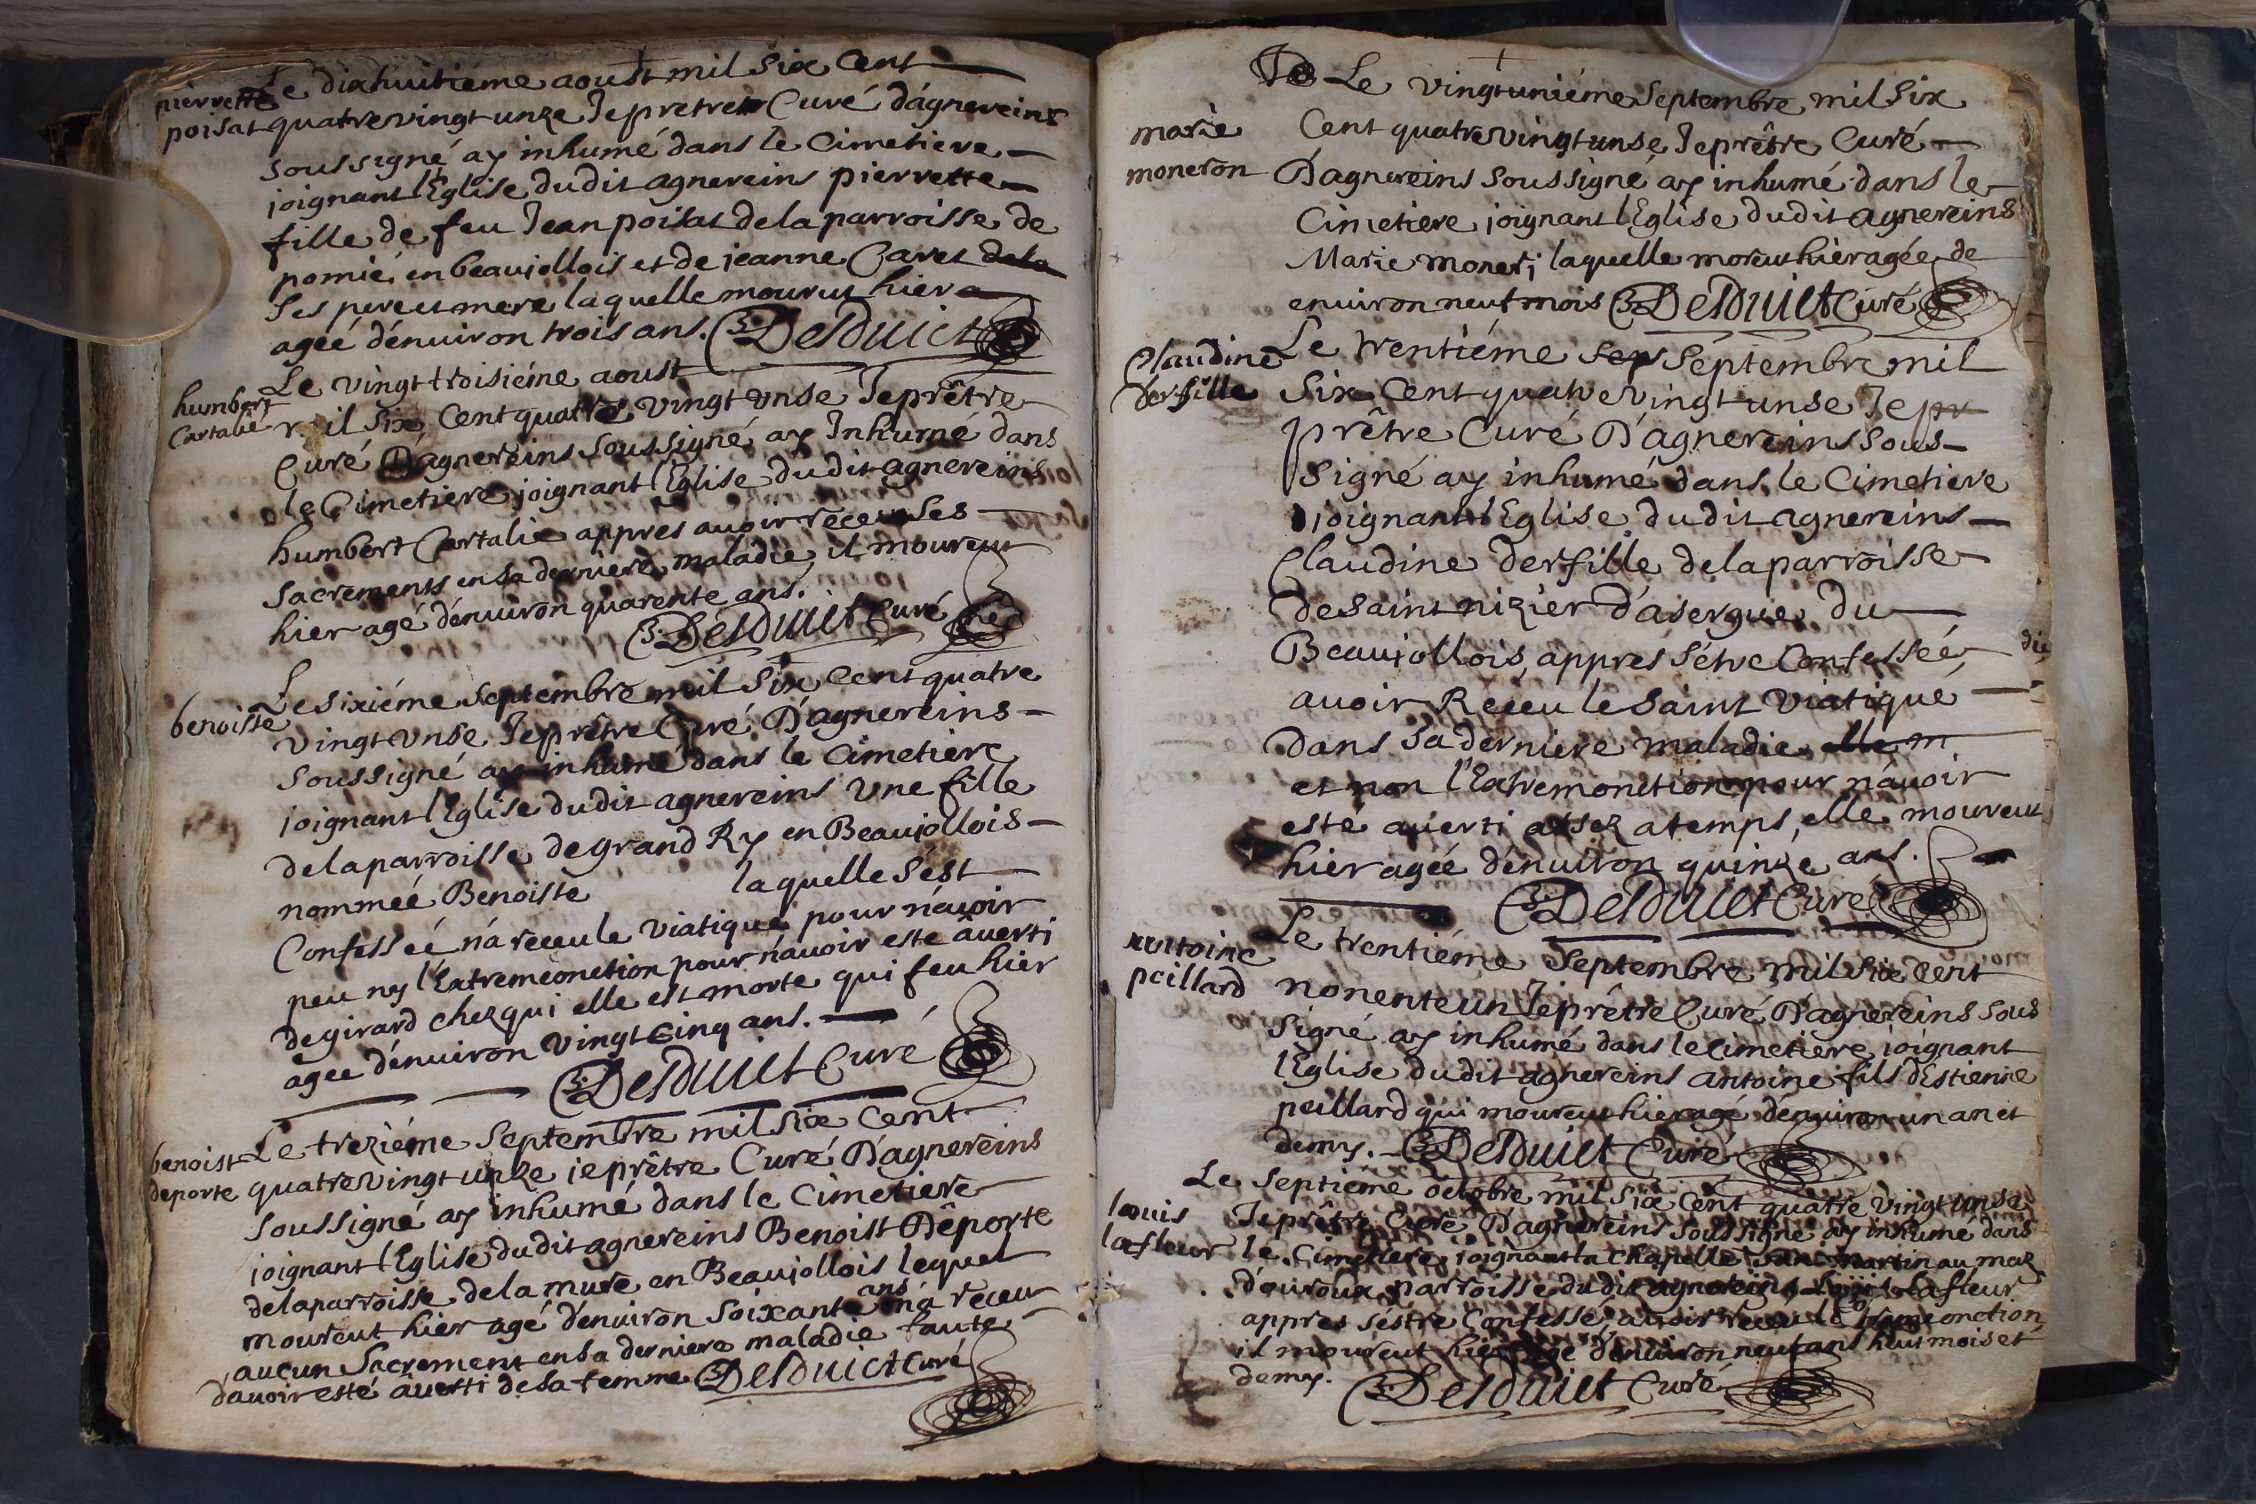 pierrette
poisat
Le dixhuitiéme aoust mil six cent
quatrevingt unze Je pretre Curé dágnereins
soussigné ay inhumé dans le Cimetiere
joignant l'Eglise dudit agnereins pierrette
fille de feu Jean poisat de la parroisse de
pomié en beaujollois et de jeanne Caret dela
ses pere et mere laquelle mourut hier a
ageé dénuiron trois ans. Desduict
humbert
Cartalie
Le vingt troisiéme aoust
mil six Cent quatre vingt unse Je prêtre
Curé Dágnereins soussigné ay Inhumé dans
le Cimetiere joignant l'Eglise dudit agnereins
humbert Cartalie appres auoir receu ses
sacrements en sa derniere maladie, il moureut
hier agé dénuiron quarente ans.
Desduict Curé
benoiste
Le sixiéme septembre mil six Cent quatre
vingt unse Je prêtre Curé Dágnereins
soussigné ay inhumé dans le Cimetiere
joignant l'Eglise dudit agnereins une fille
de la parroisse de grand Ry en Beaujollois
nommeé Benoiste laquelle sést
Confesseé ná receu le viatique pour náuoir
peu ny l'Extremeonction pour náuoir esté áuerti
de girard chez qui elle est morte qui feu hier
agee dénuiron vingt Cinq ans.
Desduict Curé
benoist
deporte
Le treziéme septembre mil six Cent
quatrevingt unze je prêtre Curé Dágnereins
soussigné ay inhumé dans le Cimetiere
joignant l'Eglise dudit agnereins Benoist Dêporte
de la parroisse de la mure en Beaujollois lequel
moureut hier agé dénuiron soixante ans ná receu
aucun Sacrement en sa derniere maladie faute
dauoir esté áuerti de sa femme Desduict Curé
marie
moneron
Le vingt uniéme Septembre mil six
Cent quatre vingt unse Je prêtre Curé
Dágnereins soussigné ay inhumé dans le
Cimetiere joignant l'Eglise dudit agnereins
Marie laquelle moreut hier agée de
enuiron neuf mois Desduict Curé
Claudine
derfille
Le trentiéme sep septembre mil
six Cent quatre vingt unse Je pr
prêtre Curé Dágnereins sous
signé ay inhumé dans le Cimetiere
joignant l'Eglise dudit agnereins
Claudine derfille de la parroisse
de saint nizier d'asergue du
Beaujollois, appres sétre Confesseé,
auoir Receu le saint viatique
dans sa derniere maladie elle m
et non l'Extremonction pour náuoir
esté auerti assez atemps, elle moureut
hier ageé dénuiron quinze ans.
Desduict Curé
antoine
peillard
Le trentiéme Septembre mil six Cent
nonente un Je prêtre Curé Dágnereins sous
signé ay inhumé dans le cimetiere joignant
l'Eglise dudit agnereins antoine fils dEstienne
peillard qui moureut hier agé dénuiron un an et
demy. Desduict Curé
louis
lafleur
Le Septiéme octobre mil six Cent quatre vingt unse
Je prêtre Curé Dagnereins soussigné ay inhumé dans
le Cimetiere joignant la chapelle saint martin au maz
parroisse dudit agnereins Louis Lafleur
appres sêstre Confessé, auoir receu le onction
il moureut hier agé dénuiron neuf ans huit mois et
demy. Desduict Curé